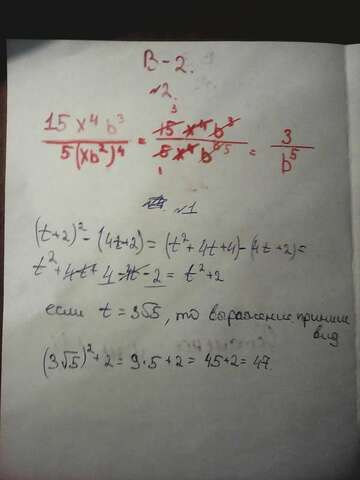 В-2.
№2.
15x⁴b³ / 5(xb²)⁴ = 15x⁴b³ / 5x⁴b⁸ = 3 / b⁵
№1
(t+2)² - (4t+2) = (t²+4t+4)-(4t+2)=
t²+4t+4-4t-2 = t²+2
если t = 3√5, то выражение примит
вид
(3√5)²+2 = 9·5+2 = 45+2 = 47